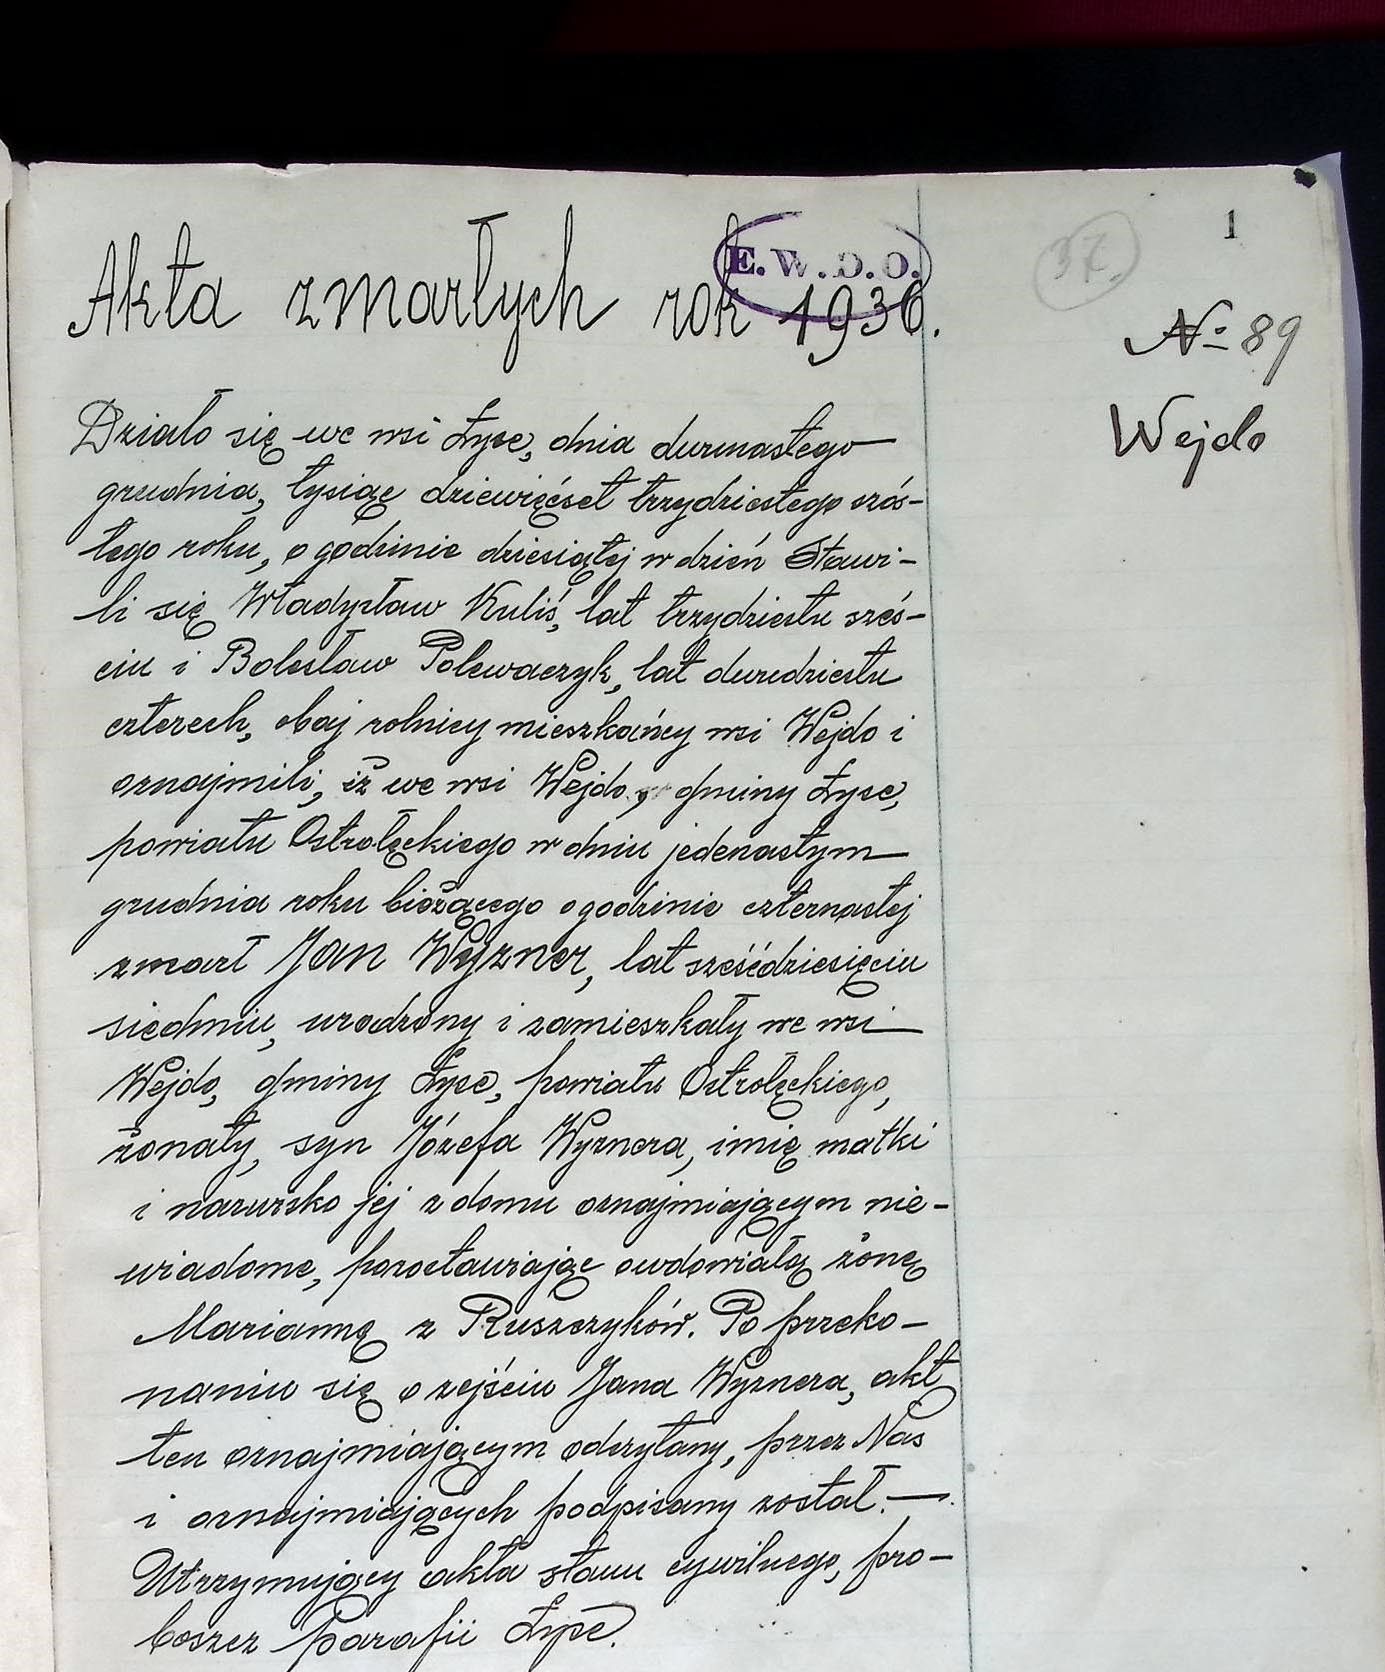 1
37.
E. W. D. O.
Akta zmarłych rok 1936.
№ 89
Wejdo
Działo się we wsi Łyse, dnia dwunastego
grudnia, tysiąc dziewięćset trzydziestego szós-
tego roku, o godzinie dziesiątej w dzień Stawi-
li się Władysław Kuliś, lat trzydziestu sześ-
ciu i Bolesław Polewaczyk, lat dwudziestu
czterech, obaj rolnicy mieszkańcy wsi Wejdo i
oznajmili, iż we wsi Wejdo, gminy Łyse,
powiatu Ostrołęckiego w dniu jedenastym
grudnia roku bieżącego o godzinie czternastej
zmarł Jan Wyzner, lat sześćdziesięciu
siedmiu, urodzony i zamieszkały we wsi
Wejdo, gminy Łyse, powiatu Ostrołęckiego,
żonaty, syn Józefa Wyznera, imię matki
i nazwisko jej z domu oznajmiającym nie-
wiadome, pozostawiając owdowiałą żonę
Mariannę z Ruszczyków. Po przeko-
naniu się o zejściu Jana Wyznera, akt
ten oznajmiającym odczytany, przez Nas
i oznajmiających podpisany został.
Utrzymujący akta stanu cywilnego, pro-
boszcz Parafii Łyse.